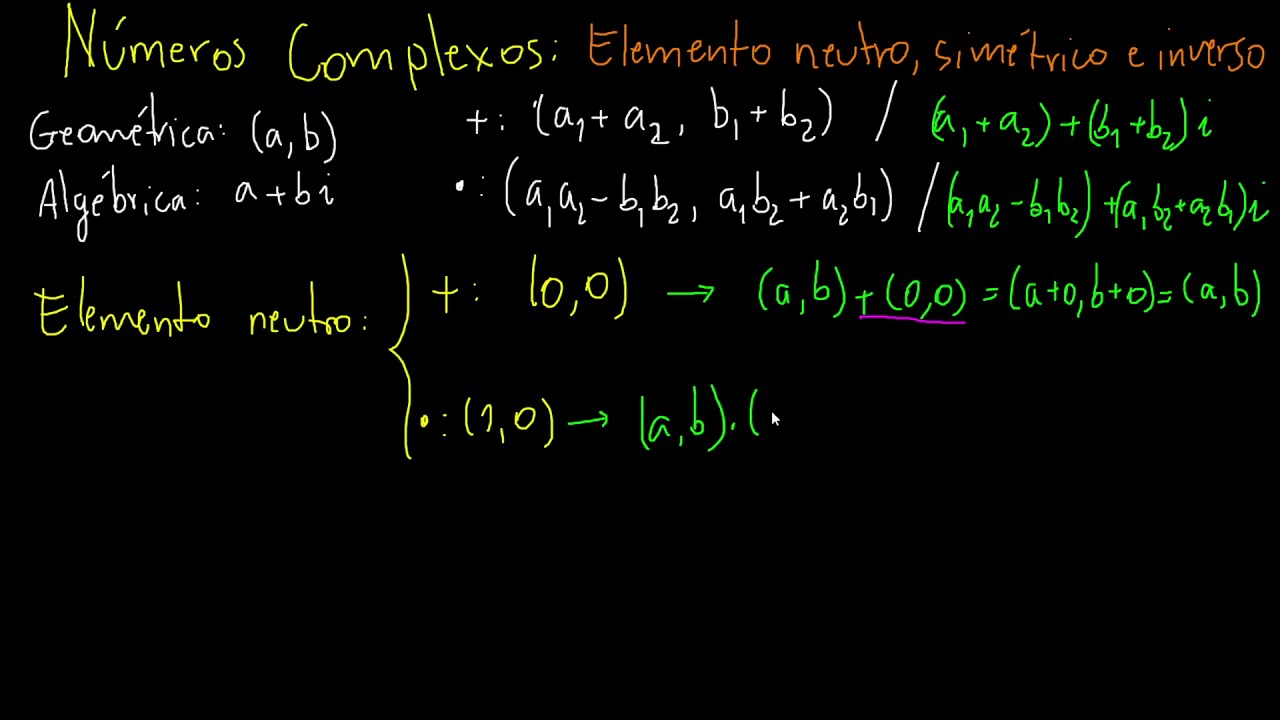 Números Complexos: Elemento neutro, simétrico e inverso
Geométrica: (a,b) +: (a₁+a₂, b₁+b₂) / (a₁+a₂)+(b₁+b₂)i
Algébrica: a+bi •: (a₁a₂-b₁b₂, a₁b₂+a₂b₁) / (a₁a₂-b₁b₂)+(a₁b₂+a₂b₁)i
Elemento neutro: { +: (0,0) → (a,b)+(0,0)=(a+0,b+0)=(a,b)
•: (1,0) → (a,b).(